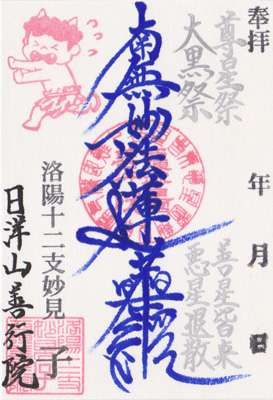 奉拝
年 月 日
尊星祭
大黒祭
善星皆来
悪星退散
南無妙法蓮華経
洛陽十二支妙見 子
日洋山善行院